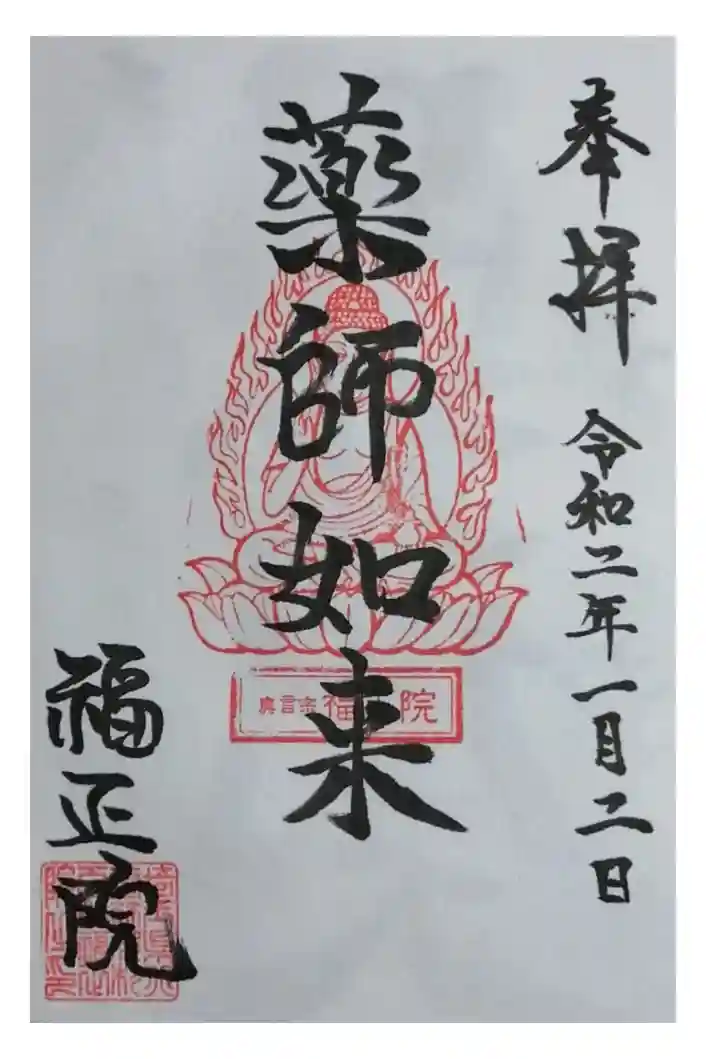 奉拝 令和二年一月二日
薬師如来
真言宗 福 院
福正院